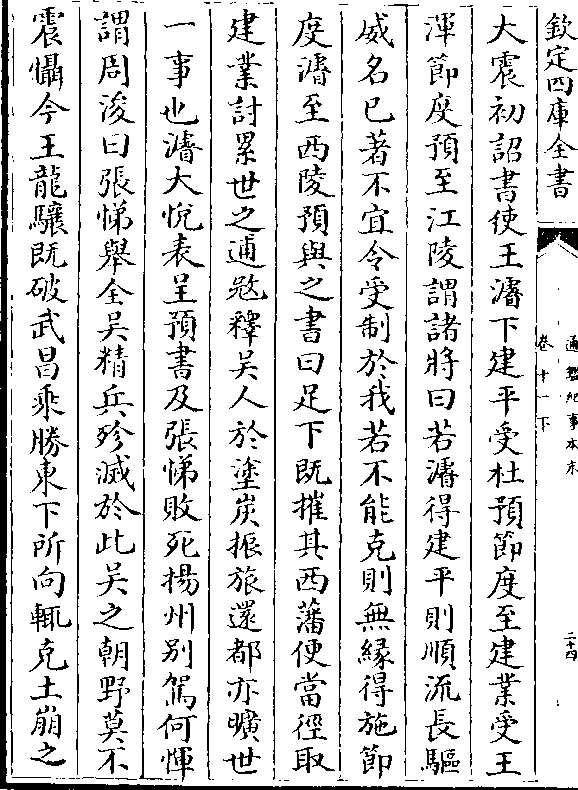 欽定四庫全書
通鑑紀事本末
卷十一下
二十四
大震初詔書使王濬下建平受杜預節度至建業受王
渾節度預至江陵謂諸將曰若濬得建平則順流長驅
威名已著不宜令受制於我若不能克則無緣得施節
度濬至西陵預與之書曰足下既摧其西藩便當徑取
建業討累世之逋㓂釋吳人於塗炭振旅還都亦曠世
一事也濬大悅表呈預書及張悌敗死揚州别駕何惲
謂周浚曰張悌舉全吳精兵殄滅於此吳之朝野莫不
震懾今王龍驤既破武昌乘勝東下所向輒克土崩之